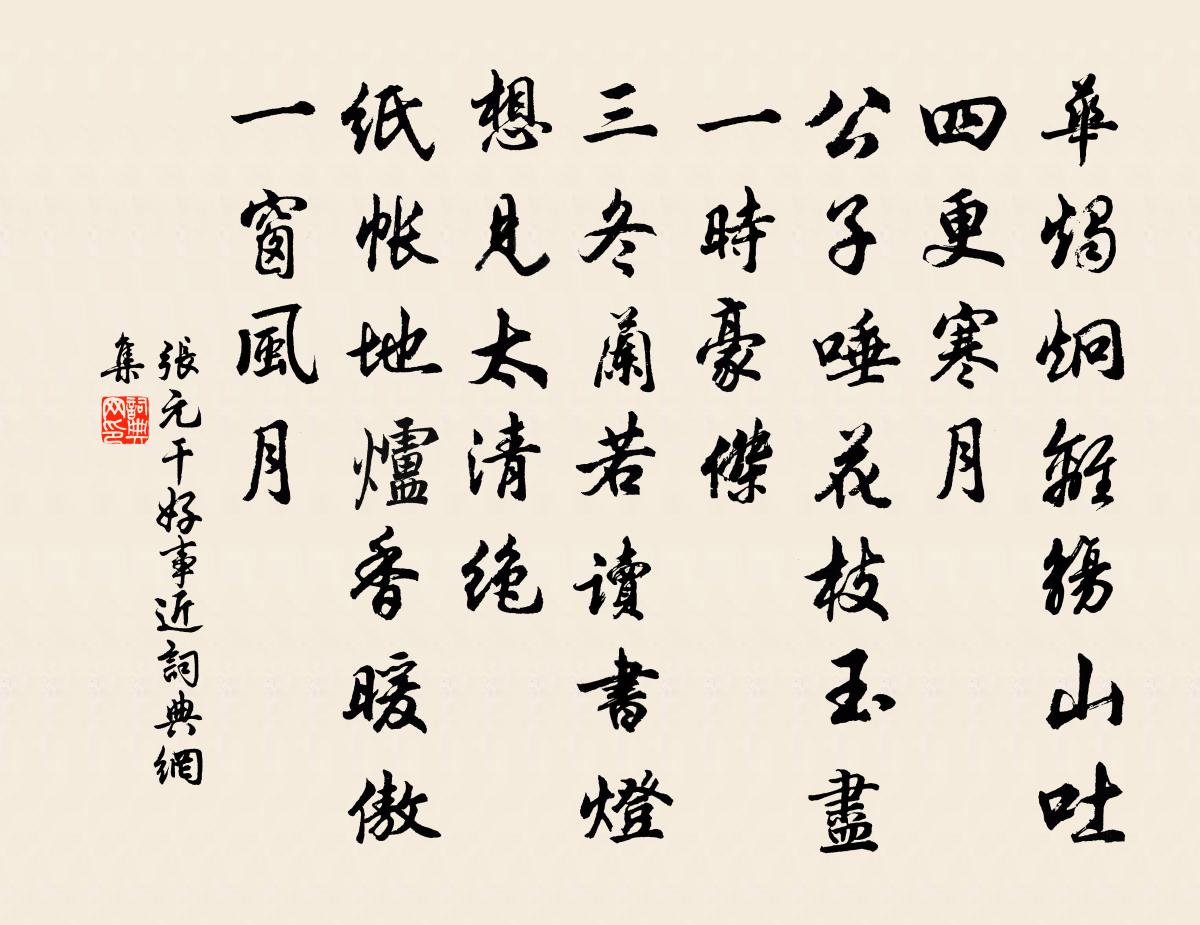 華燭炯離觴山吐
四更寒月
公子唾花枝玉盡
一時豪傑
三冬蘭若讀書燈
想見太清絕
紙帳地爐香暖傲
一窗風月
張元干好事近詞典網
集
詞典
网印